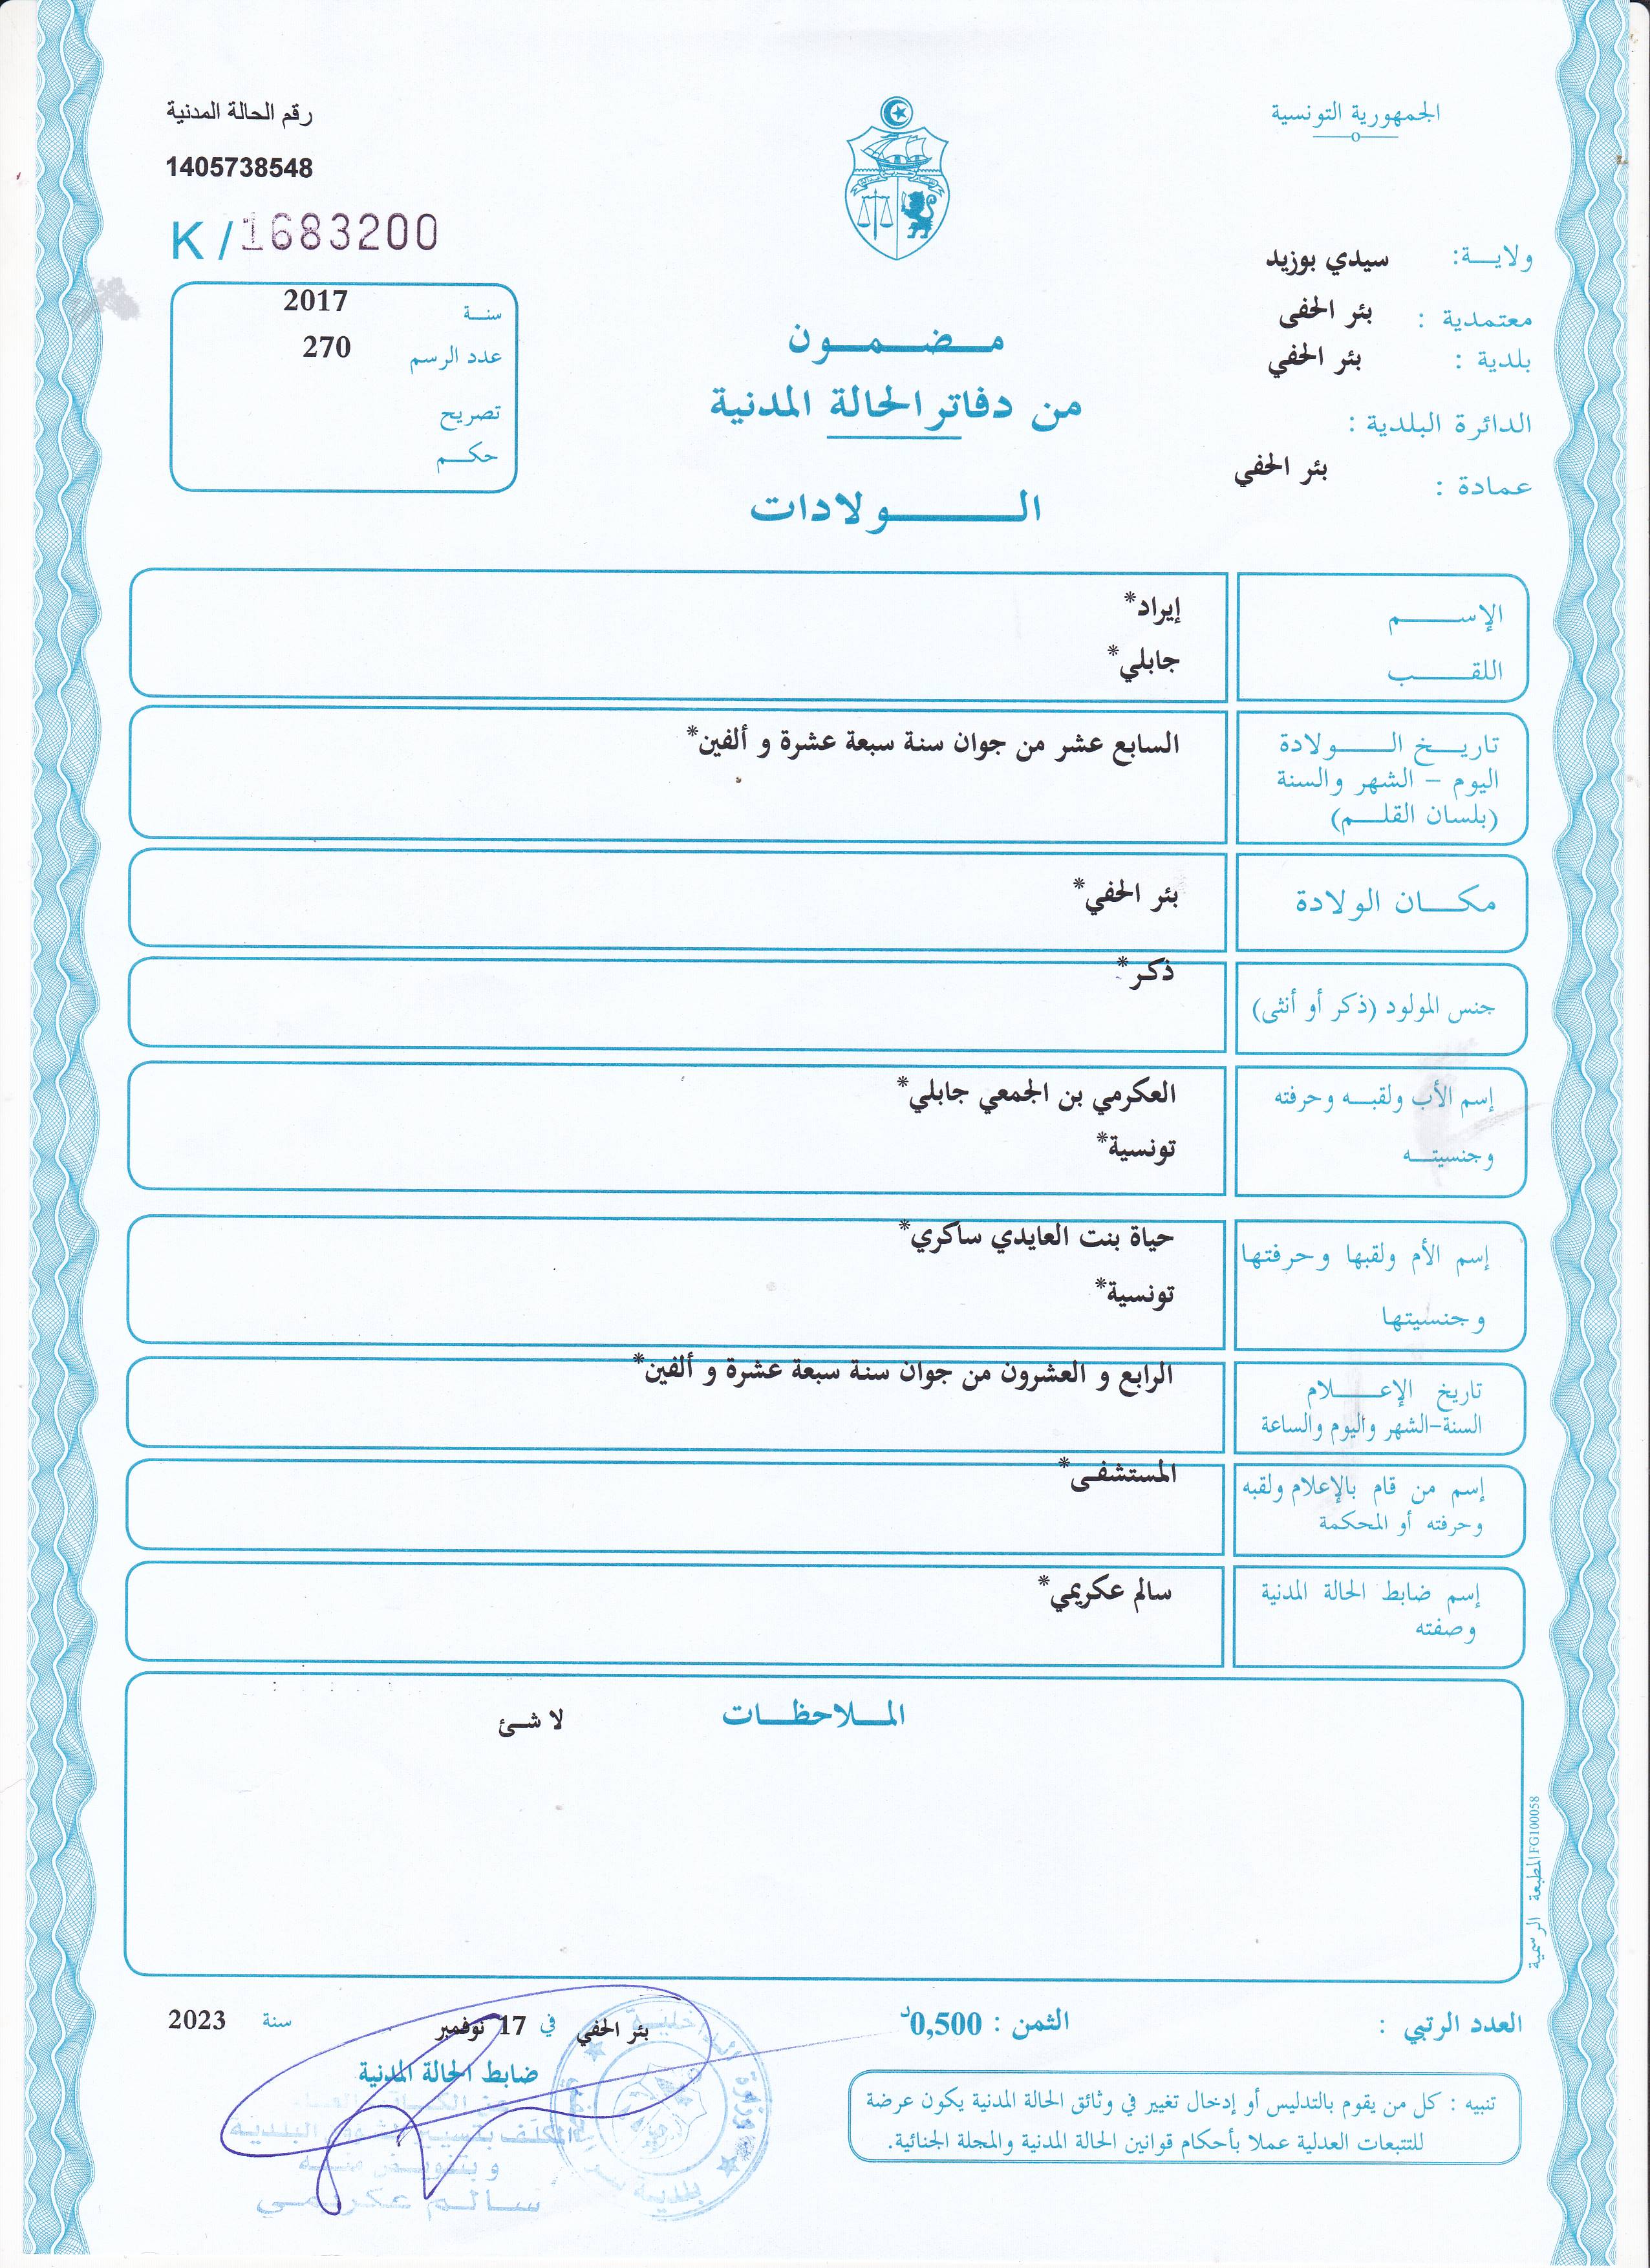 الجمهورية التونسية
رقم الحالة المدنية
1405738548
K/1683200
ولاية: سيدي بوزيد
معتمدية : بئر الحفى
بلدية : بئر الحفي
الدائرة البلدية :
عمادة : بئر الحفي
مضمون
من دفاتر الحالة المدنية
الولادات
سنة 2017
عدد الرسم 270
تصريح
حكم
الإسم إيراد*
اللقب جابلي*
تاريخ الولادة السابع عشر من جوان سنة سبعة عشرة و ألفين*
اليوم – الشهر والسنة
(بلسان القلم)
مكان الولادة بئر الحفي*
جنس المولود (ذكر أو أنثى) ذكر*
إسم الأب ولقبه وحرفته العكرمي بن الجمعي جابلي*
وجنسيته تونسية*
إسم الأم ولقبها وحرفتها حياة بنت العايدي ساكري*
وجنسيتها تونسية*
تاريخ الإعلام الرابع و العشرون من جوان سنة سبعة عشرة و ألفين*
السنة-الشهر واليوم والساعة
إسم من قام بالإعلام ولقبه المستشفى*
وحرفته أو المحكمة
إسم ضابط الحالة المدنية سالم عكريمي*
وصفته
الملاحظات لا شئ
المطبعة الرسمية FG100058
العدد الرتبي : الثمن : 0,500د
بئر الحفي في 17 نوفمبر سنة 2023
ضابط الحالة المدنية
المكلف بتسيير البلدية
و بتفويض منه
سالم عكريمي
بلدية
تنبيه : كل من يقوم بالتدليس أو إدخال تغيير في وثائق الحالة المدنية يكون عرضة
للتتبعات العدلية عملا بأحكام قوانين الحالة المدنية والمجلة الجنائية.